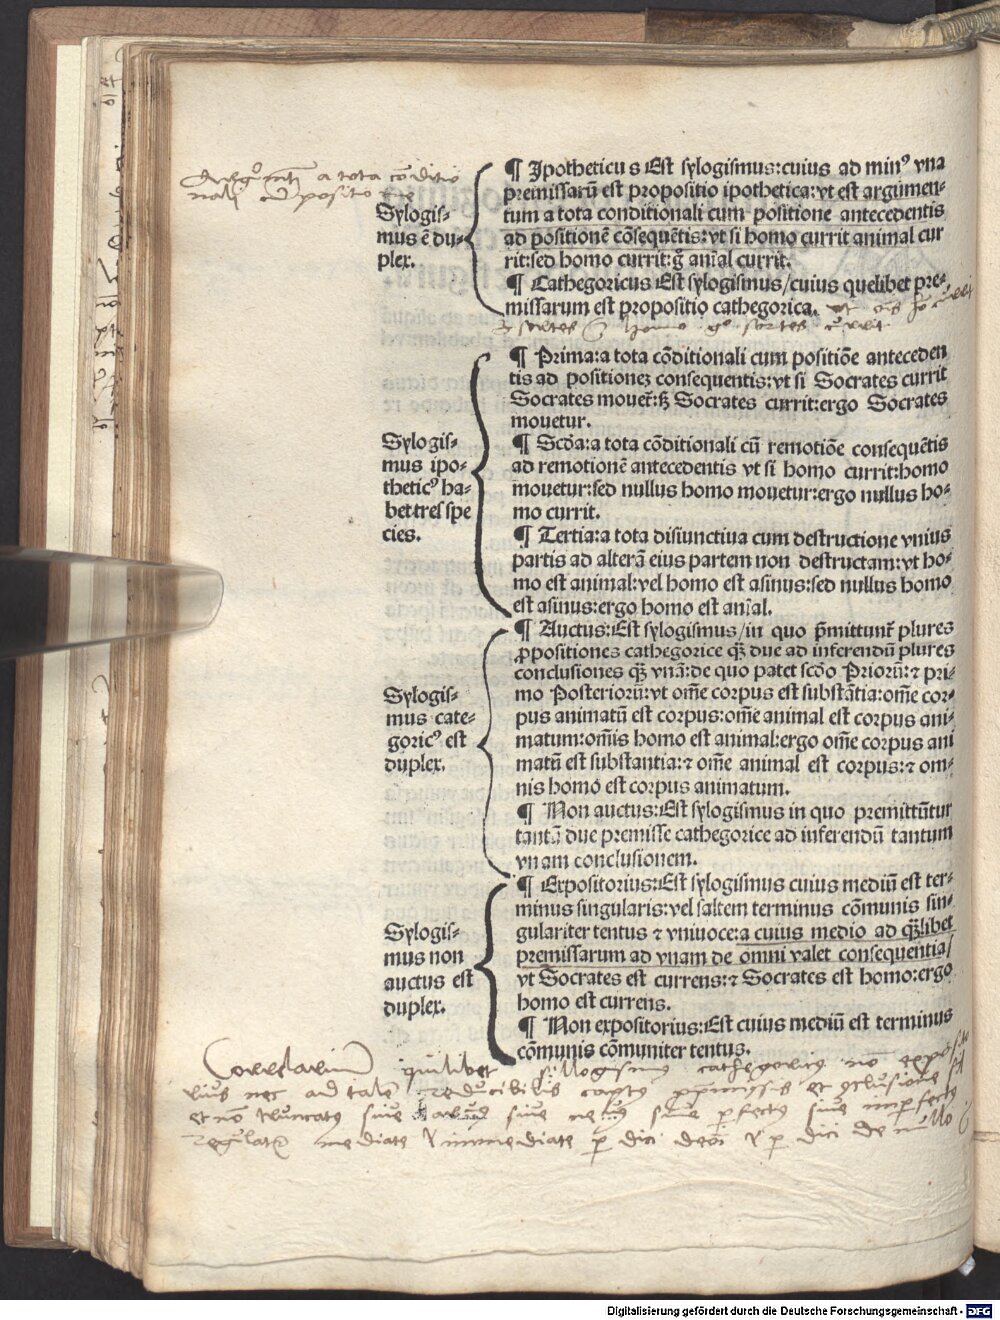 a tota conditio
Sylogis-
mus ē du-
plex.
¶ Ipotheticus Est sylogismus:cuius ad minꝰ vna
premissarū est propositio ipothetica:vt est argumen-
tum a tota conditionali cum positione antecedentis
ad positionē cōsequētis:vt si homo currit animal cur
rit:sed homo currit:gͦ anīal currit.
¶ Cathegoricus Est sylogismus/cuius quelibet pre-
missarum est propositio cathegorica.
homo gͦ sortes currit
Sylogis-
mus ipo-
theticꝰ ha-
bet tres spe
cies.
¶ Prima:a tota cōditionali cum positiōe anteceden
tis ad positionez consequentis:vt si Socrates currit
Socrates mouet̄:sꝫ Socrates currit:ergo Socrates
mouetur.
¶ Scd̄a:a tota cōditionali cū remotiōe consequētis
ad remotionē antecedentis vt si homo currit:homo
mouetur:sed nullus homo mouetur:ergo nullus ho-
mo currit.
¶ Tertia:a tota disiunctiua cum destructione vnius
partis ad alterā eius partem non destructam:vt ho-
mo est animal:vel homo est asinus:sed nullus homo
est asinus:ergo homo est anīal.
Sylogis-
mus cate-
goricꝰ est
duplex.
¶ Auctus:Est sylogismus/in quo p̄mittunt̄ plures
ꝓpositiones cathegorice qꝫ due ad inferendū plures
conclusiones qꝫ vnā:de quo patet scd̄o Priorū:⁊ pri-
mo Posteriorū:vt om̄e corpus est substātia:om̄e cor-
pus animatū est corpus:om̄e animal est corpus ani-
matum:om̄is homo est animal:ergo om̄e corpus ani
matū est substantia:⁊ om̄e animal est corpus:⁊ om-
nis homo est corpus animatum.
¶ Non auctus:Est sylogismus in quo premittūtur
tantū due premisse cathegorice ad inferendū tantum
vnam conclusionem.
Sylogis-
mus non
auctus est
duplex.
¶ Expositorius:Est sylogismus cuius mediū est ter-
minus singularis:vel saltem terminus cōmunis sin-
gulariter tentus ⁊ vniuoce:a cuius medio ad qꝫlibet
premissarum ad vnam de omni valet consequentia/
vt Socrates est currens:⁊ Socrates est homo:ergo
homo est currens.
¶ Non expositorius:Est cuius mediū est terminus
cōmunis cōmuniter tentus.
Correlarium quilibet sillogismus cathegoricus nō
rius nec ad talem reducibilis
et nō truncatus siue siue siue perfectus siue imperfectus
mediate immediate dici de dici de nullo
Digitalisierung gefördert durch die Deutsche Forschungsgemeinschaft - DFG